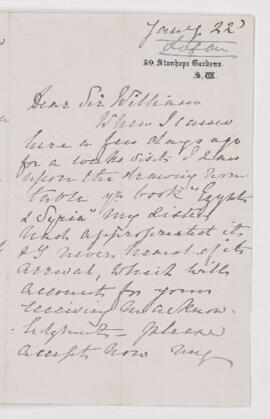 Jany 22
29, Stanhope Gardens.
S.W.
Dear Sir William
When I came
here a few days ago
for a weeks visit I saw
upon the drawing room
table yr book "Egypt
& Syria" My sister
had appropriated it
& I never heard of its
arrival, which will
account for your
receiving no acknow-
ledgment – please
accept now my